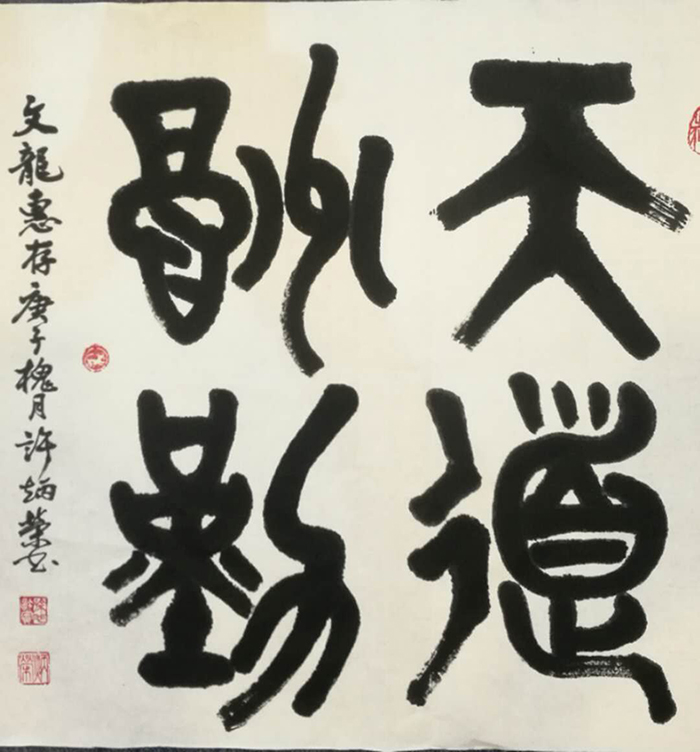 天道
酬勤
文龍惠存庚子槐月許炳榮書